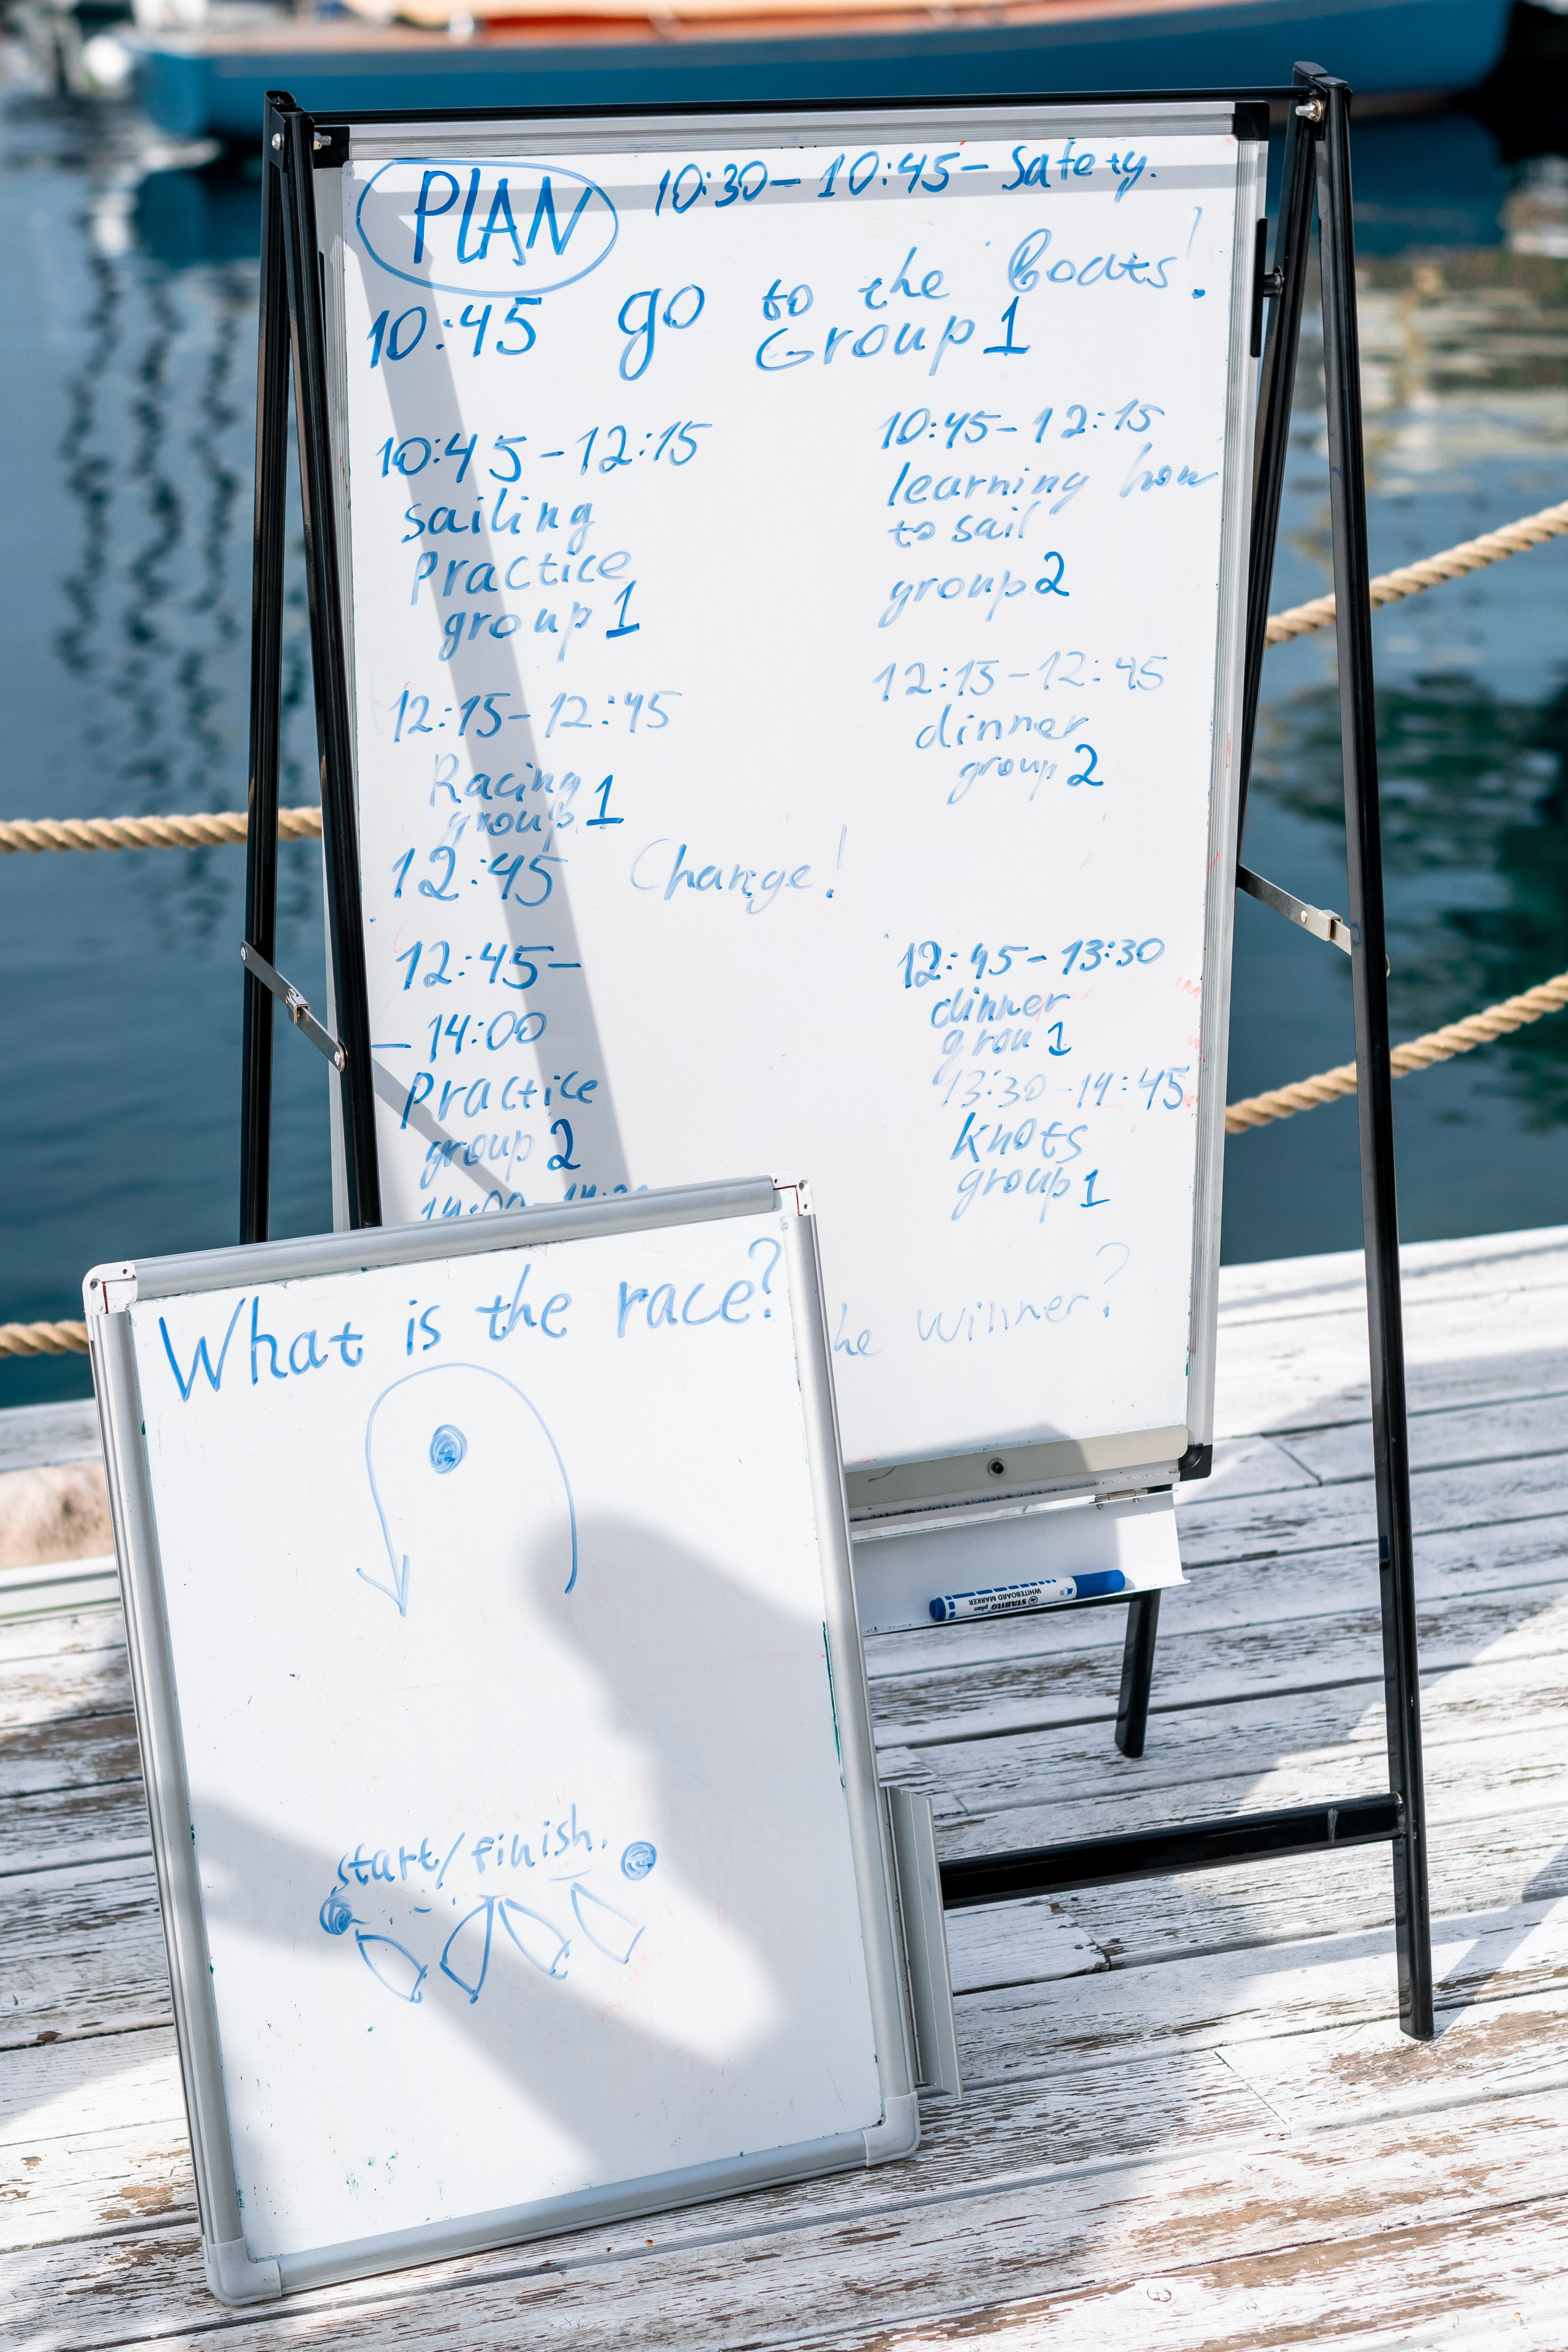 PLAN 10:30 - 10:45 - Safety.
10:45 go to the Boats!
Group 1
10:45 - 12:15
sailing
Practice
group 1
12:15 - 12:45
Racing
group 1
12:45 Change!
12:45 -
- 14:00
Practice
group 2
10:45 - 12:15
learning how
to sail
group 2
12:15 - 12:45
dinner
group 2
12:45 - 13:30
dinner
grou 1
13:30 - 14:45
knots
group 1
winner?
What is the race?
start/finish.
STABILO plan
WHITEBOARD MARKER